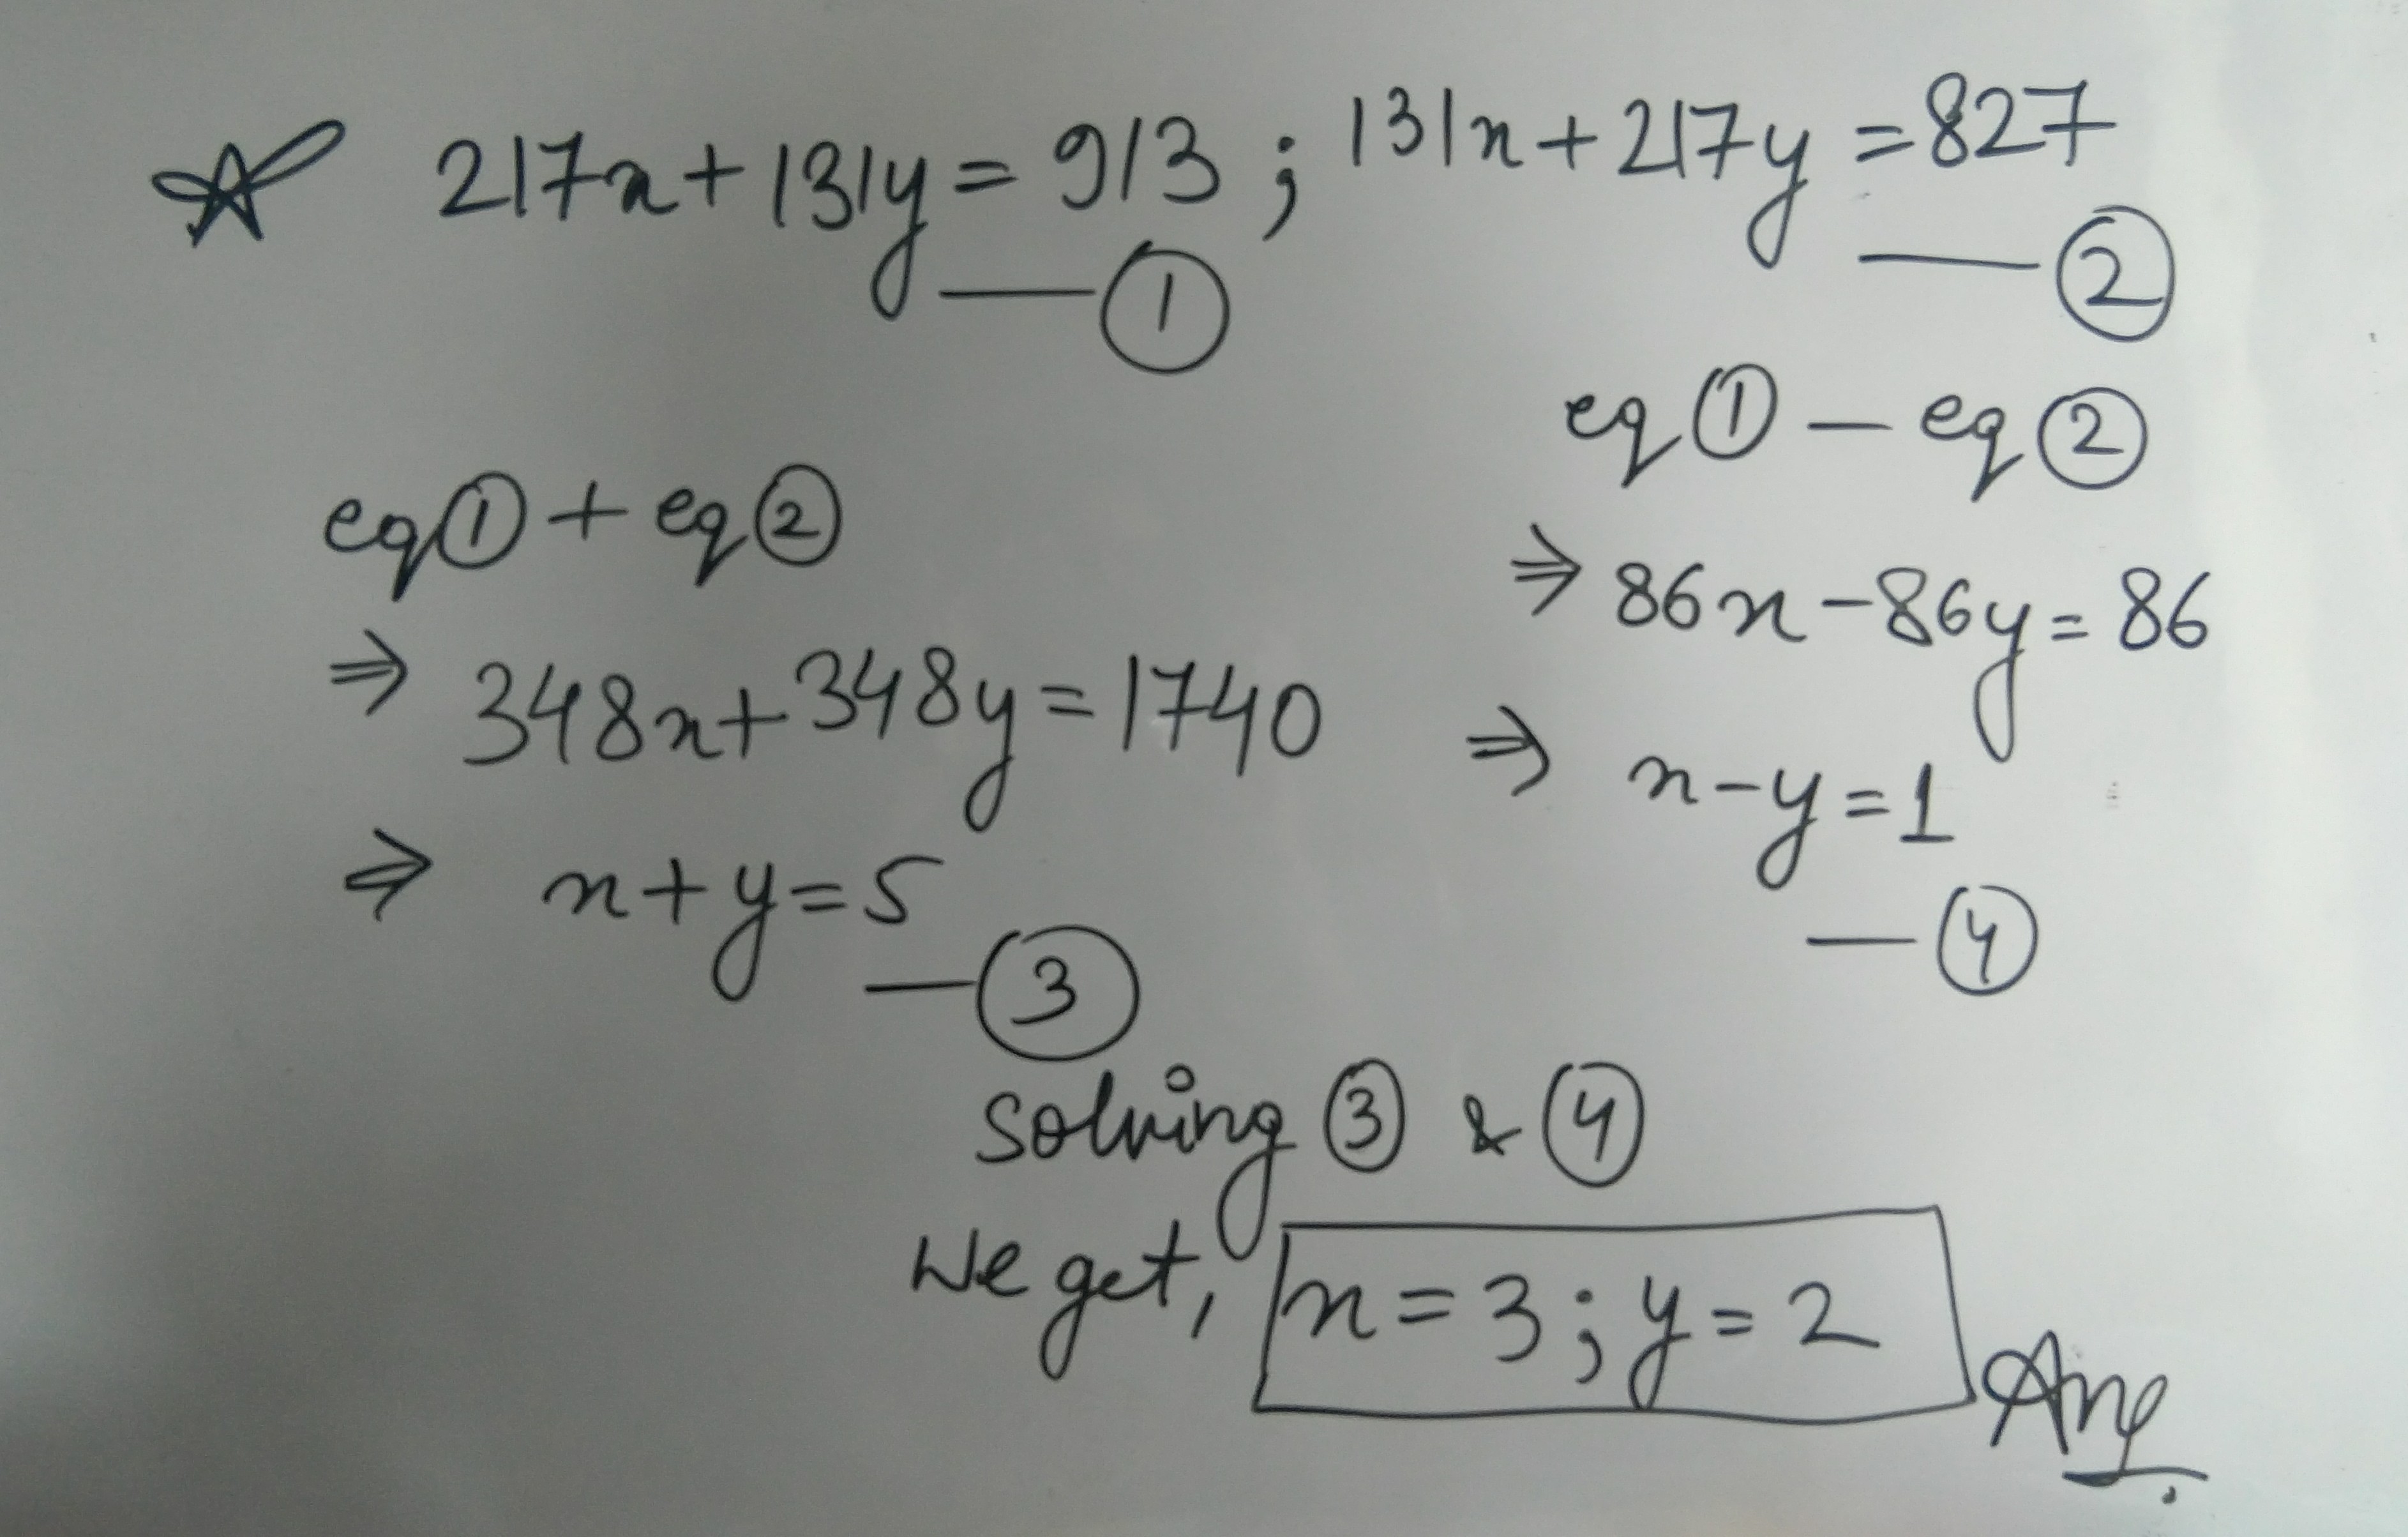 ☆ 217x+131y=913 ; 131x+217y=827
—① —②
eq① + eq②
⇒ 348x+348y=1740
⇒ x+y=5
—③
eq① – eq②
⇒ 86x–86y=86
⇒ x–y=1
—④
solving ③ & ④
We get, x=3; y=2 Ans.